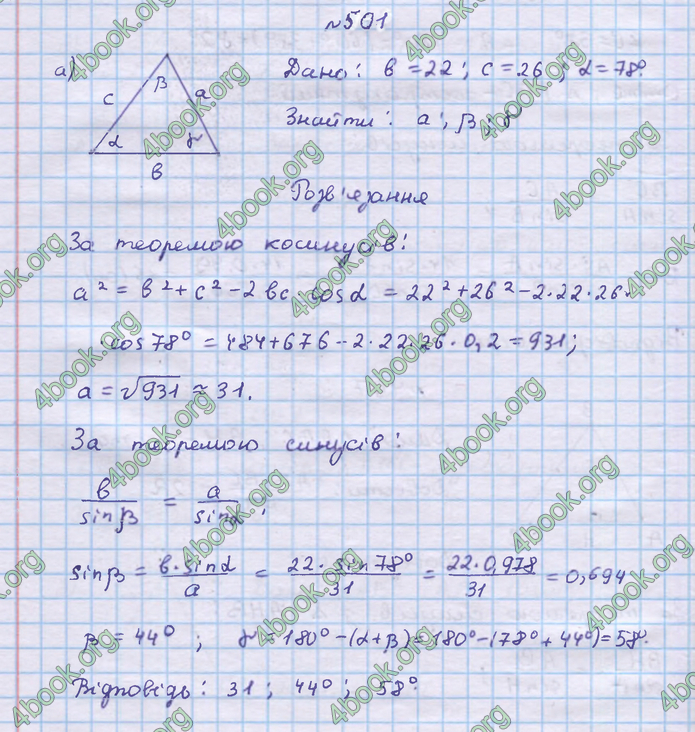 №501
а) β а c α γ в
Дано: в = 22; с = 26; α = 78°.
Знайти: а; β; γ
Розв'язання
За теоремою косинусів:
a² = в² + с² - 2вс cosα = 22² + 26² - 2·22·26·
·cos78° = 484 + 676 - 2·22·26·0,2 = 931;
a = √931 ≈ 31.
За теоремою синусів:
в/sinβ = a/sinα;
sinβ = в·sinα/a = 22·sin78°/31 = 22·0,978/31 = 0,694
β = 44°; γ = 180° - (α + β) = 180° - (78° + 44°) = 58°.
Відповідь: 31; 44°; 58°.
4book.org